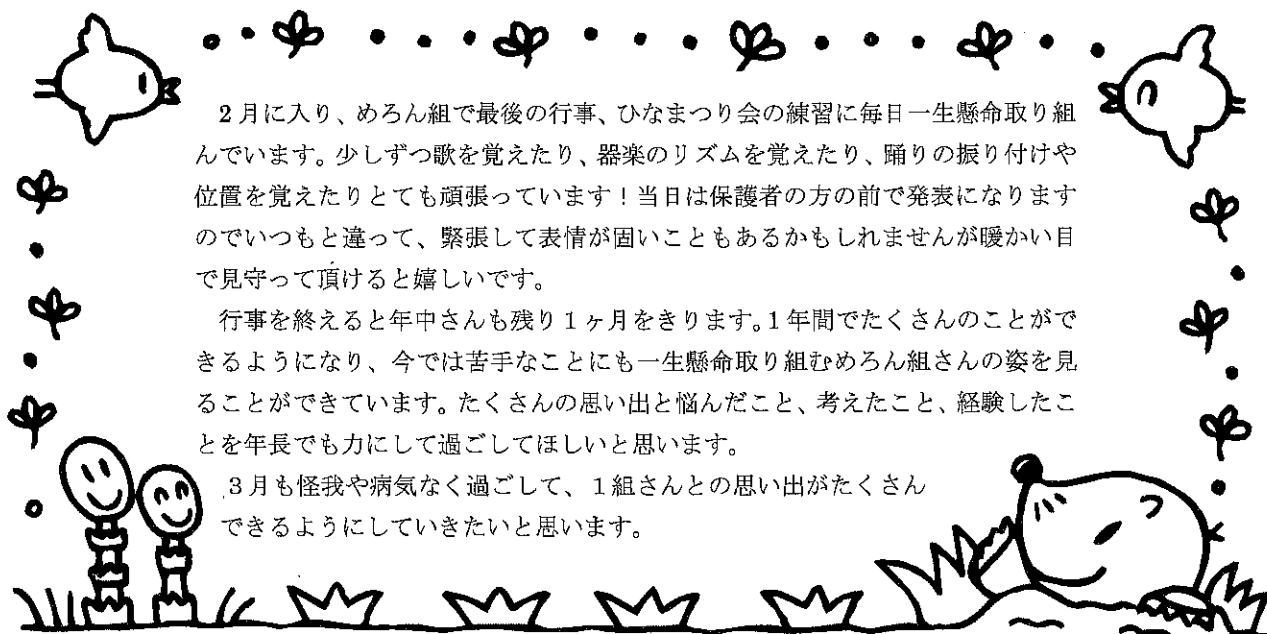 2月に入り、めろん組で最後の行事、ひなまつり会の練習に毎日一生懸命取り組
んでいます。少しずつ歌を覚えたり、器楽のリズムを覚えたり、踊りの振り付けや
位置を覚えたりとても頑張っています！当日は保護者の方の前で発表になります
のでいつもと違って、緊張して表情が固いこともあるかもしれませんが暖かい目
で見守って頂けると嬉しいです。
行事を終えると年中さんも残り１ヶ月をきります。１年間でたくさんのことがで
きるようになり、今では苦手なことにも一生懸命取り組むめろん組さんの姿を見
ることができています。たくさんの思い出と悩んだこと、考えたこと、経験したこ
とを年長でも力にして過ごしてほしいと思います。
３月も怪我や病気なく過ごして、１組さんとの思い出がたくさん
できるようにしていきたいと思います。